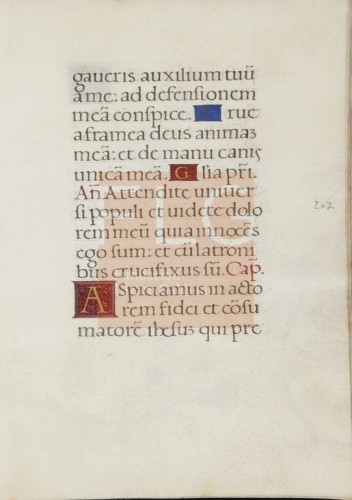 gaueris auxilium tuũ
a me: ad defensionem
meã conspice. E rue
a framea deus animaʒ
meã: et de manu canis
unicã meã. G l̃ia pr̃i.
Añ Attendite uniuer
si populi et uidete dolo
rem meũ quia innocẽs
ego sum: et cũ latroni
bus crucifixus sũ. Cap̃.
A Spiciamus in acto
rem fidei et cõsu
matorẽ ihesuʒ qui pre
207
FLG